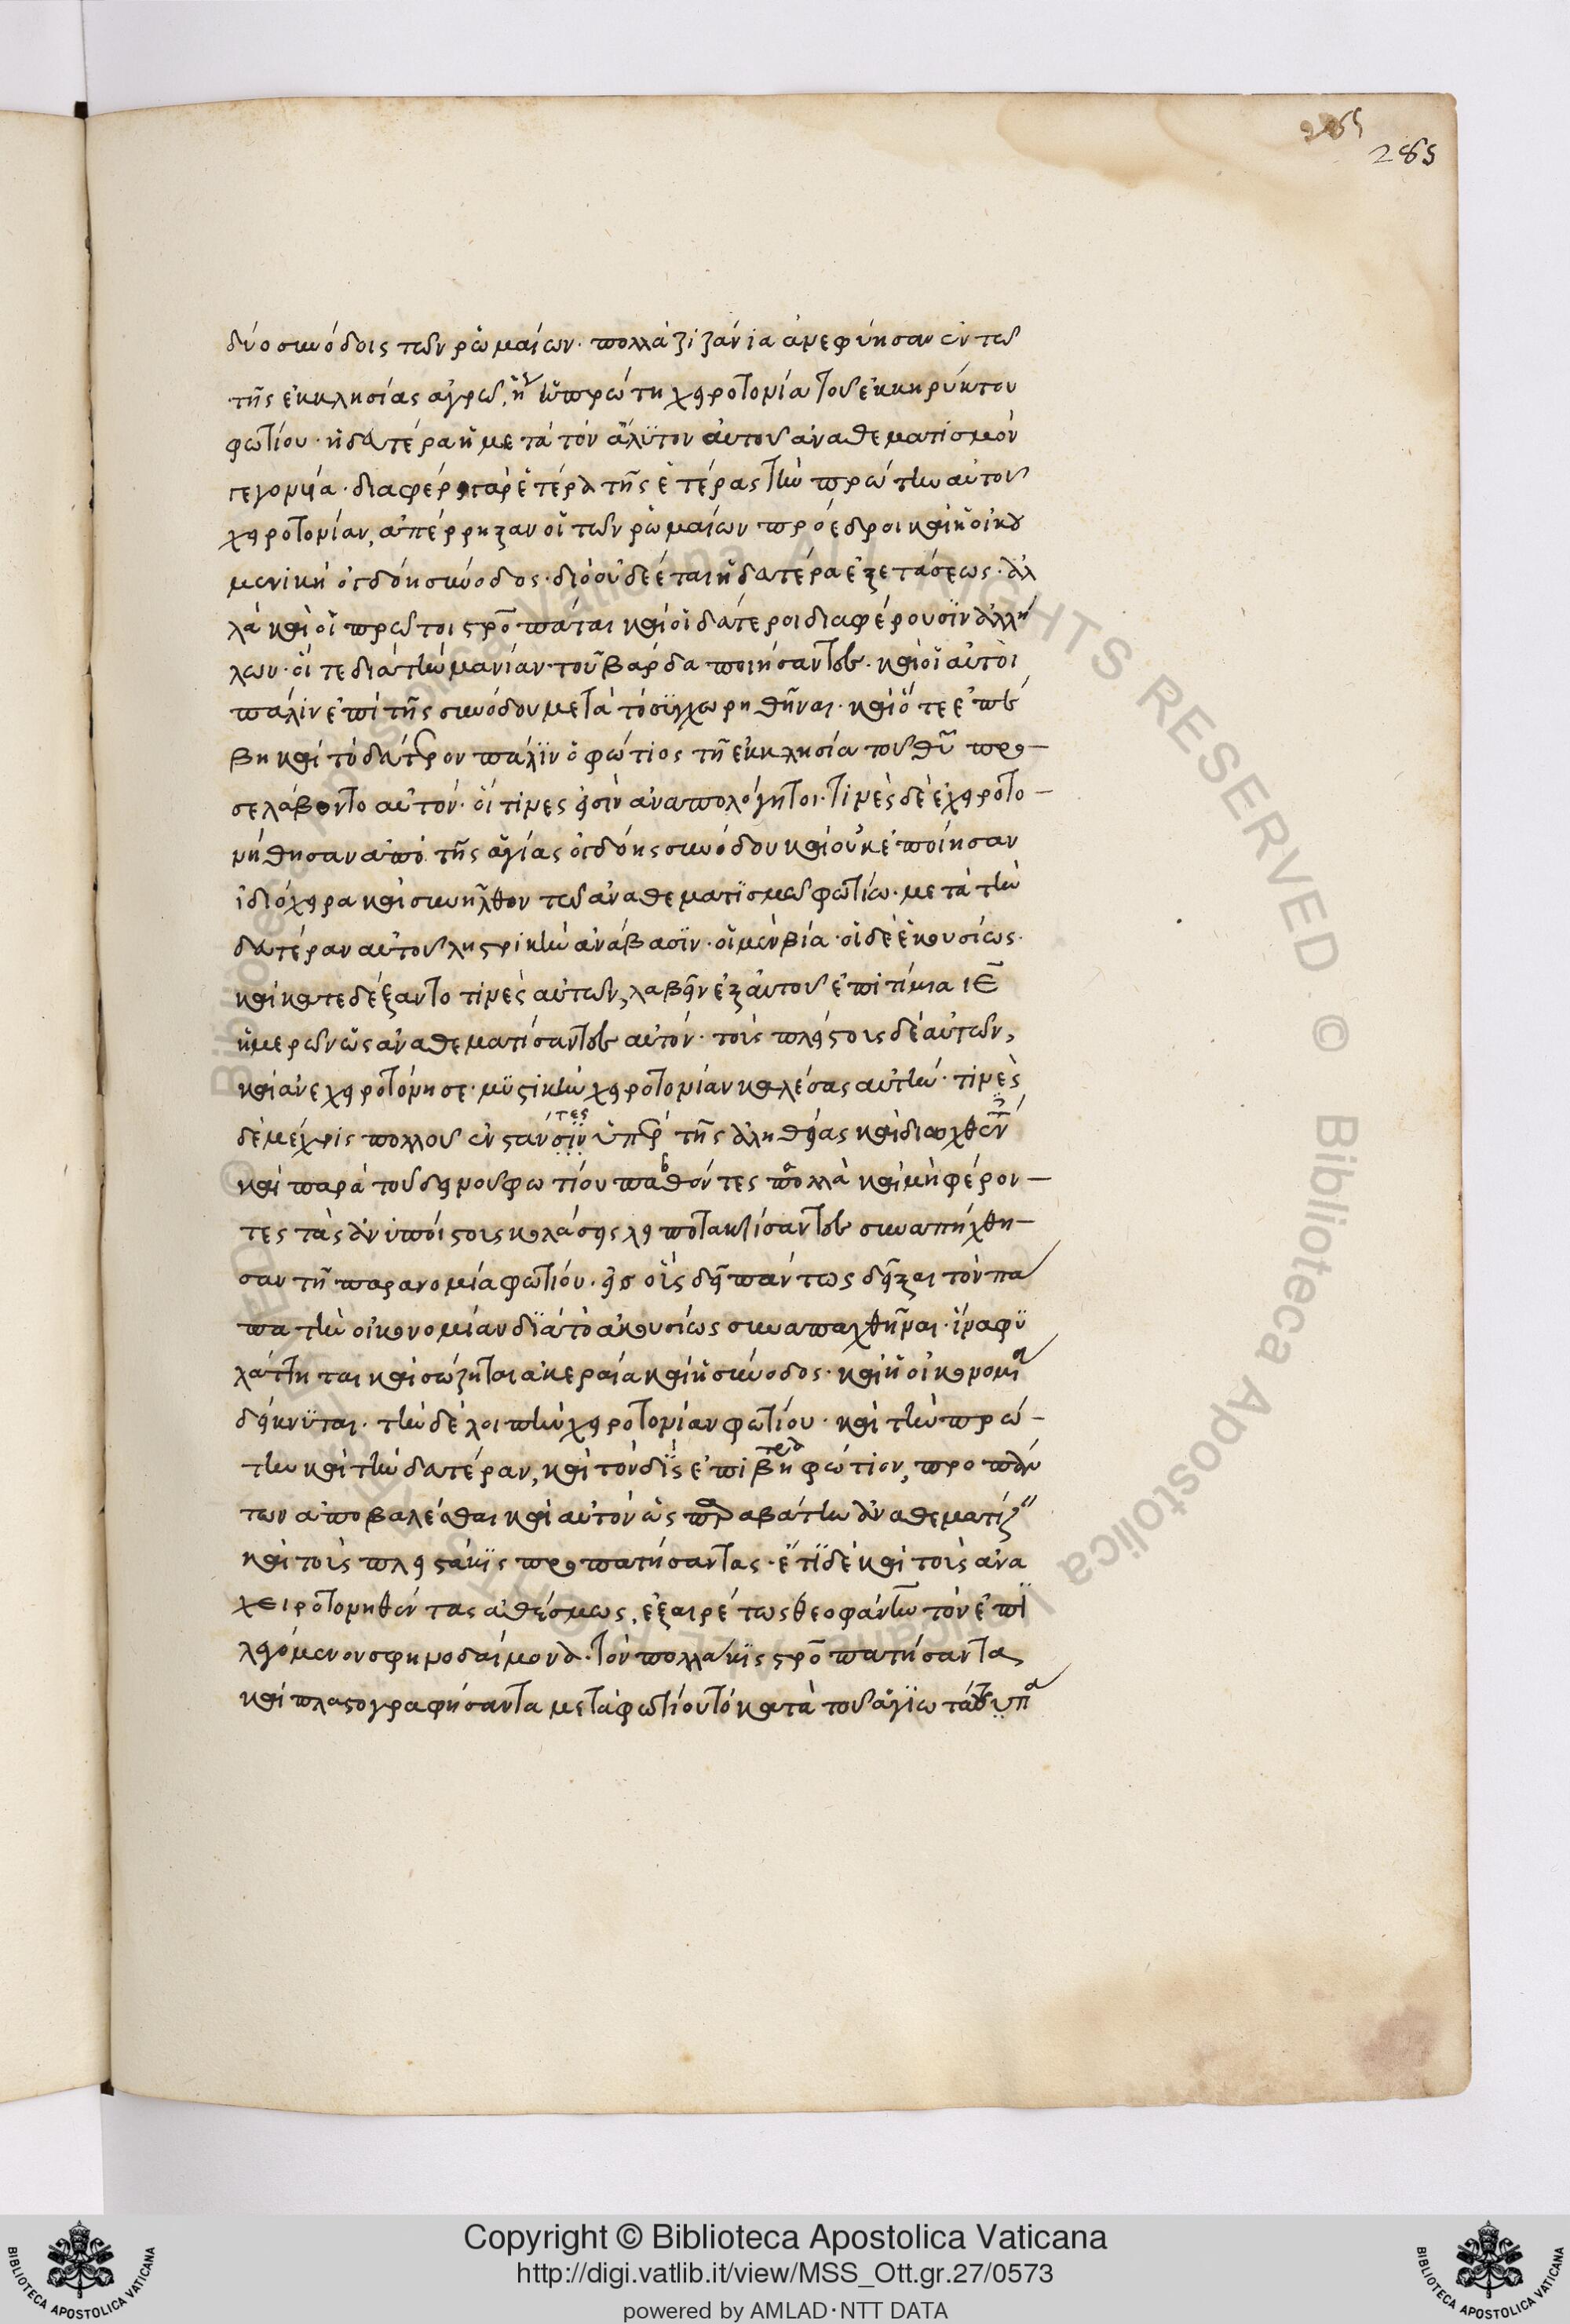 285
285
δύο συνόδοις τῶν ῥωμαίων· πολλὰ ζιζάνια ἀνεφύησαν ἐν τῷ
τῆς ἐκκλησίας ἀγρῷ, ἡ πρώτη χειροτονία τοῦ ἐκκηρύκτου
φωτίου· ἡ δευτέρα ἡ μετὰ τὸν ἄλυτον αὐτοῦ ἀναθεματισμὸν
γεγονυῖα· διαφέρει γὰρ ἑτέρα τῆς ἑτέρας τὴν πρώτην αὐτοῦ
χειροτονίαν, ἀπέρρηξαν οἱ τῶν ῥωμαίων πρόεδροι καὶ ἡ οἰκου
μενικὴ ὀγδόη σύνοδος· διὸ οὐ δέεται ἡ δευτέρα ἐξετάσεως· ἀλ
λὰ καὶ οἱ πρῶτοι σταυροπάται καὶ οἱ δεύτεροι διαφέρουσιν ἀλλή
λων· οἵ τε διὰ τὴν μανίαν τοῦ βάρδα ποιήσαντες· καὶ οἱ αὐτοὶ
πάλιν ἐπὶ τῆς συνόδου μετὰ τὸ συγχωρηθῆναι· καὶ ὅτε ἐπέ
βη καὶ τὸ δεύτερον πάλιν ὁ φώτιος τῇ ἐκκλησία τοῦ θῦ προ
σελάβοντο αὐτόν· οἵ τινές εἰσιν ἀναπολόγητοι· τινὲς δὲ ἐχειροτο
νήθησαν ἀπὸ τῆς ἁγίας ὀγδόης συνόδου καὶ οὐκ ἐποίησαν
ἰδιόχειρα καὶ συνῆλθον τῷ ἀναθεματισμῷ φωτίω· μετὰ τὴν
δευτέραν αὐτοῦ ληστρικὴν ἀνάβασιν· οἱ μὲν βία· οἱ δὲ ἑκουσίως·
καὶ κατεδέξαντο τινὲς αὐτῶν, λαβεῖν ἐξ αὐτοῦ ἐπιτίμια ιε
ἡμερῶν ὡς ἀναθεματίσαντες αὐτόν· τοῖς πλείστοις δὲ αὐτῶν,
καὶ ἀνεχειροτόνησε· μυστικὴν χειροτονίαν καλέσας αὐτήν· τινὲς
δὲ μέχρις πολλοῦ ἐνστάντες ὑπὲρ τῆς ἀληθείας καὶ διωχθέντες
καὶ παρὰ τοῦ δεινοῦ φωτίου παθόντες πολλὰ καὶ μὴ φέρον
τες τὰς ἀνυποίστοις κολάσεις λειποτακτίσαντες συναπήχθη
σαν τῇ παρανομία φωτίου· εἰς οἷς δεῖ πάντως δεῖξαι τὸν πά
πα τὴν οἰκονομίαν διὰ τὸ ἀκουσίως συναπαχθῆναι· ἵνα φυ
λάττηται καὶ σώζηται ἀκεραία καὶ ἡ σύνοδος· καὶ ἡ οἰκονομία
δείκνυται· τὴν δὲ λοιπὴν χειροτονίαν φωτίου· καὶ τὴν πρώ
την καὶ τὴν δευτέραν, καὶ τὸν δὶς ἐπιβήτορα φώτιον, πρὸ πάν
των ἀποβαλέσθαι καὶ αὐτὸν ὡς παραβάτην ἀναθεματίζειν
καὶ τοὺς πλειστάκις προπατήσαντας· ἔτι δὲ καὶ τοὺς ἀνα
χειροτονηθέντας ἀθέσμως, ἐξαιρέτως θεοφάνην τὸν ἐπι
λεγόμενον σφηνοδαίμονα· τὸν πολλάκις σταυροπατήσαντα
καὶ πλαστογραφήσαντα μετὰ φωτίου τὸ κατὰ τοῦ ἁγιωτάτου πα
Copyright © Biblioteca Apostolica Vaticana
http://digi.vatlib.it/view/MSS_Ott.gr.27/0573
powered by AMLAD·NTT DATA